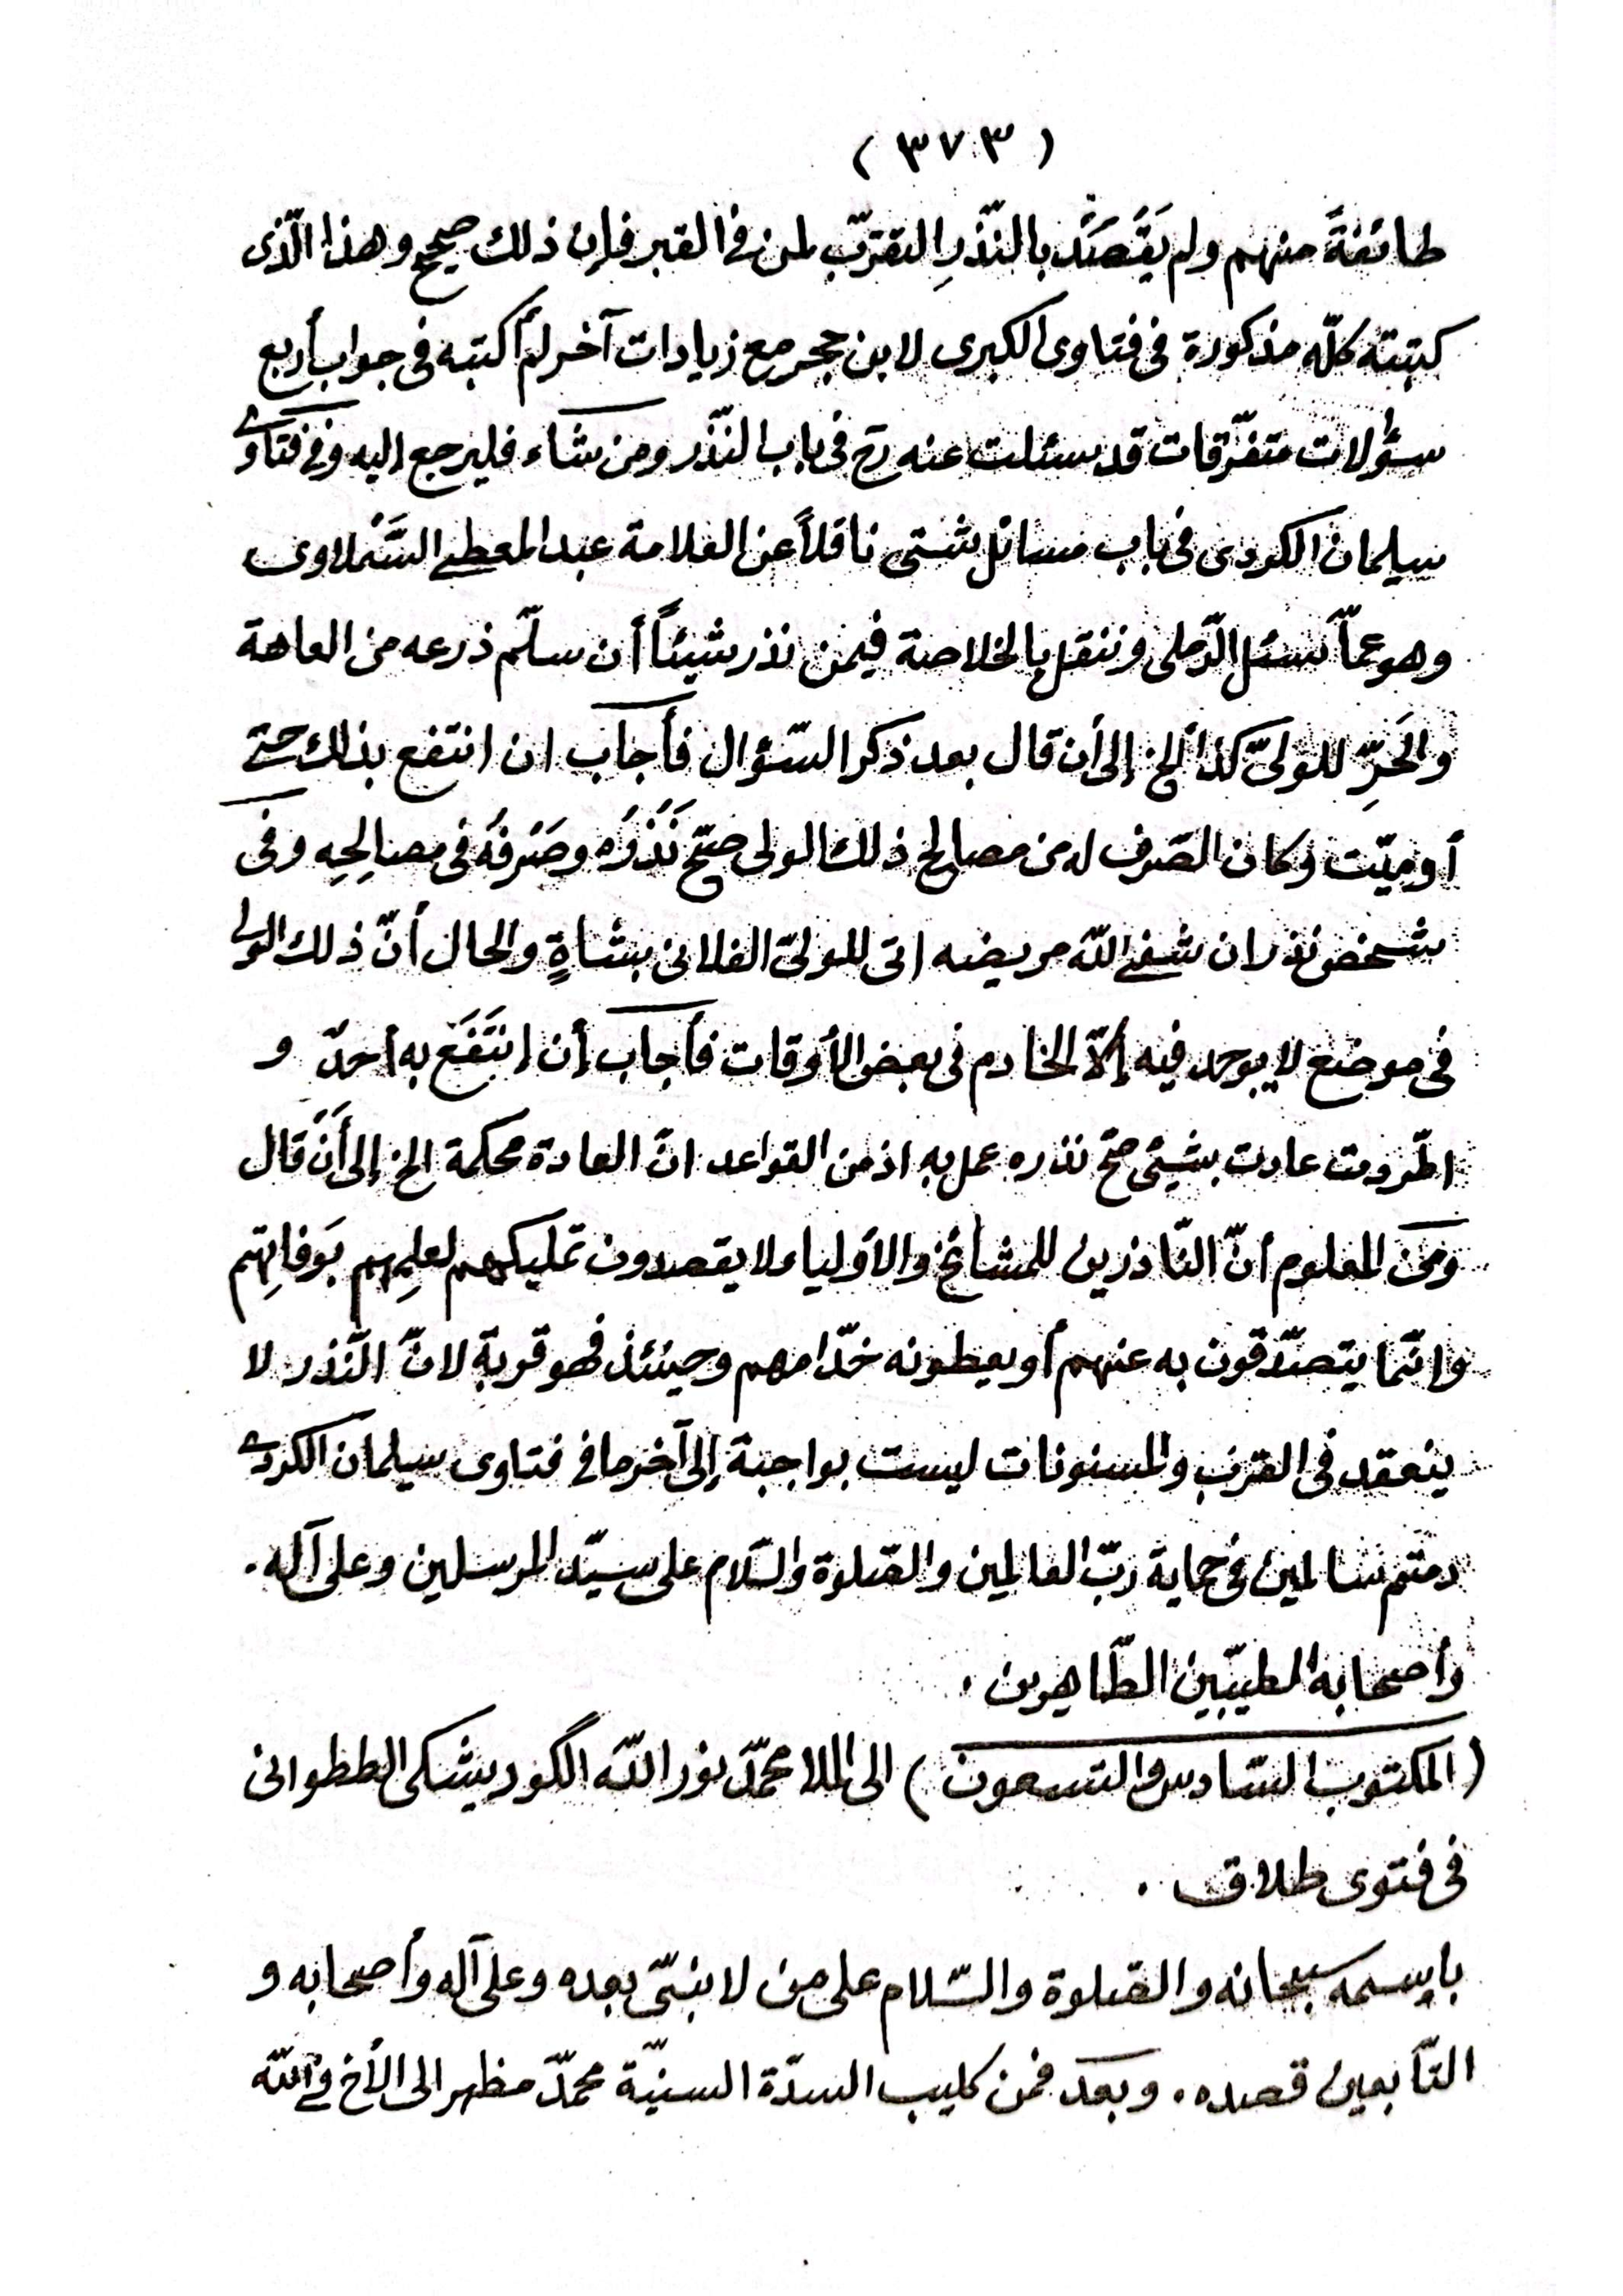 ( ٣٧٣ )
طائفةً منهم ولم يَقْصَدْ بالنّذرِ التقرّب لمن فى القبر فإن ذلك صحيح وهذا الّذى
كتبته كلّه مذكورة فى فتاوى الكبرى لابن حجر مع زيادات آخر لم أكتبه فى جواب أربع
سؤلات متفرّقات قد سئلت عنه رح فى باب النّذر ومن شاء فليرجع اليه وفى فتاوى
سيلمان الكوردى فى باب مسائل شتى ناقلاً عن العلامة عبد المعطى السَّمْلاوى
وهو عمّا سئل الرّملى وننقل بالخلاصة فيمن نذر شيئاً أن سلّم ذرعه من العاهة
والحَرِّ للولىّ كذا الخ إلى أن قال بعد ذكر السّؤال فأجاب ان انتفع بذلك حتى
أو ميّت وكان الصّرف له من مصالح ذلك الولى صحّ نَذْرُه وصَرْفُه فى مصالِحِه وفى
شخص نذر ان شفى اللّه مريضه اتى للولىّ الفلانى بشاةٍ والحال أنّ ذلك الولى
فى موضع لا يوجد فيه إلاّ الخادم فى بعض الأوقات فأجاب أن انتَفَعَ به أحدٌ و
اطّردت عادت بشيئى صحّ نذره عمل به اذ من القواعد انّ العادة محكمة الخ إلى أَنْ قال
ومن المعلوم أنّ النّاذرين للمشائخ والأولياء لا يقصدون تمليكهم لعلمِهم بوَفاتِهم
وانّما يتصدّقون به عنهم أو يعطونه خدّامهم وحينئذ فهو قربة لانّ النّذر لا
ينعقد فى القرب والمسنونات ليست بواجبة إلى آخر ما فى فتاوى سيلمان الكردى
دمتم سالمين فى حماية ربّ العالمين والصّلوة والسّلام على سيّد المرسلين وعلى آله .
وأصحابه الطيّبين الطّاهرين .
( المكتوب السّادس والتسعون ) الى الملا محمّد نور اللّه الگورديشكى الططوانى
فى فتوى طلاق .
باسمه سبحانه والصّلوة والسّلام على من لا نبىّ بعده وعلى آله وأصحابه و
التّابعين قصده . وبعد فمن كليب السدّة السنيّة محمّد مظهر الى الأخ فى اللّه